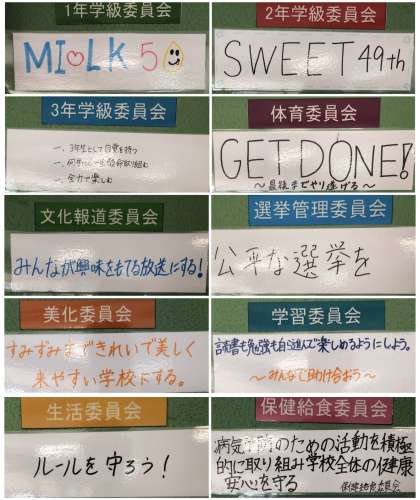 1年学級委員会
MI♡LK 50
2年学級委員会
SWEET 49th
3年学級委員会
一、3年生として自覚を持つ
一、何事にも一生懸命取り組む
一、全力で楽しむ
体育委員会
GET DONE!
〜最後までやり遂げる〜
文化報道委員会
みんなが興味をもてる放送にする!
選挙管理委員会
公平な選挙を
美化委員会
すみずみまできれいで美しく
来やすい学校にする。
学習委員会
読書も勉強も自ら進んで楽しめるようにしよう。
〜みんなで助け合おう〜
生活委員会
ルールを守ろう!
保健給食委員会
病気予防のための活動を積極
的に取り組み学校全体の健康
安心を守る
保健給食委員会